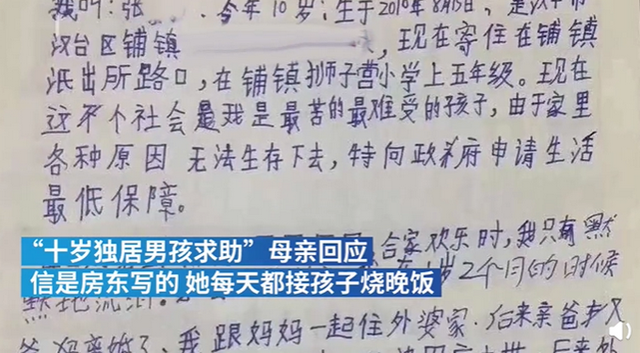 我叫:张 . 今年10岁;生于2010年8月15日,
汉台区铺镇 现在寄住在铺镇
派出所路口,在铺镇狮子营小学上五年级。现在
这个社会是我是最苦的最难受的孩子,由于家里
各种原因 无法生存下去,特向政府申请生活
最低保障。
合家欢乐时,我只有默
默地流泪。 岁2个月的时候
爸妈离婚了,我跟妈妈一起住外婆家.后来亲爸
“十岁独居男孩求助”母亲回应
信是房东写的 她每天都接孩子烧晚饭